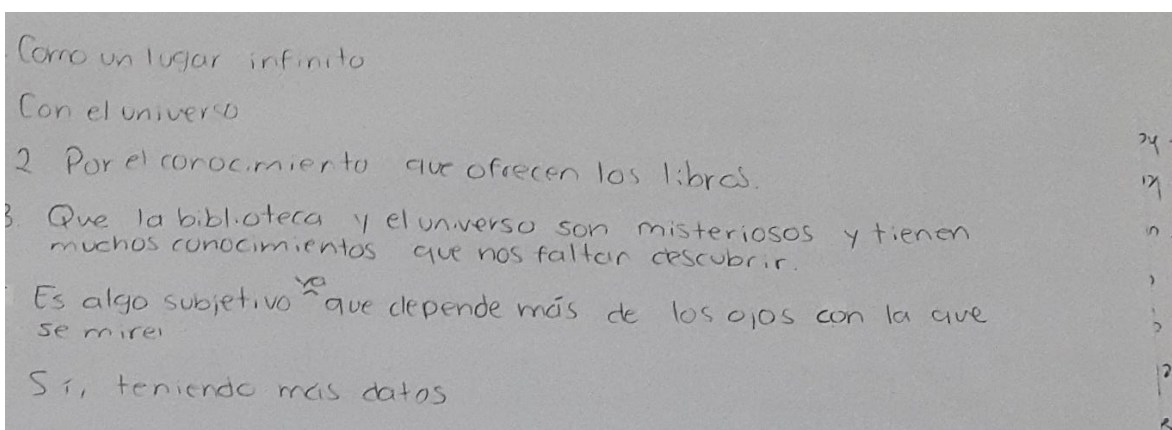 Como un lugar infinito
Con el universo
2 Por el conocimiento que ofrecen los libros.
3. Que la biblioteca y el universo son misteriosos y tienen
muchos conocimientos que nos faltan descubrir.
Es algo subjetivo ya que depende más de los ojos con la que
se mire.
Sí, teniendo más datos